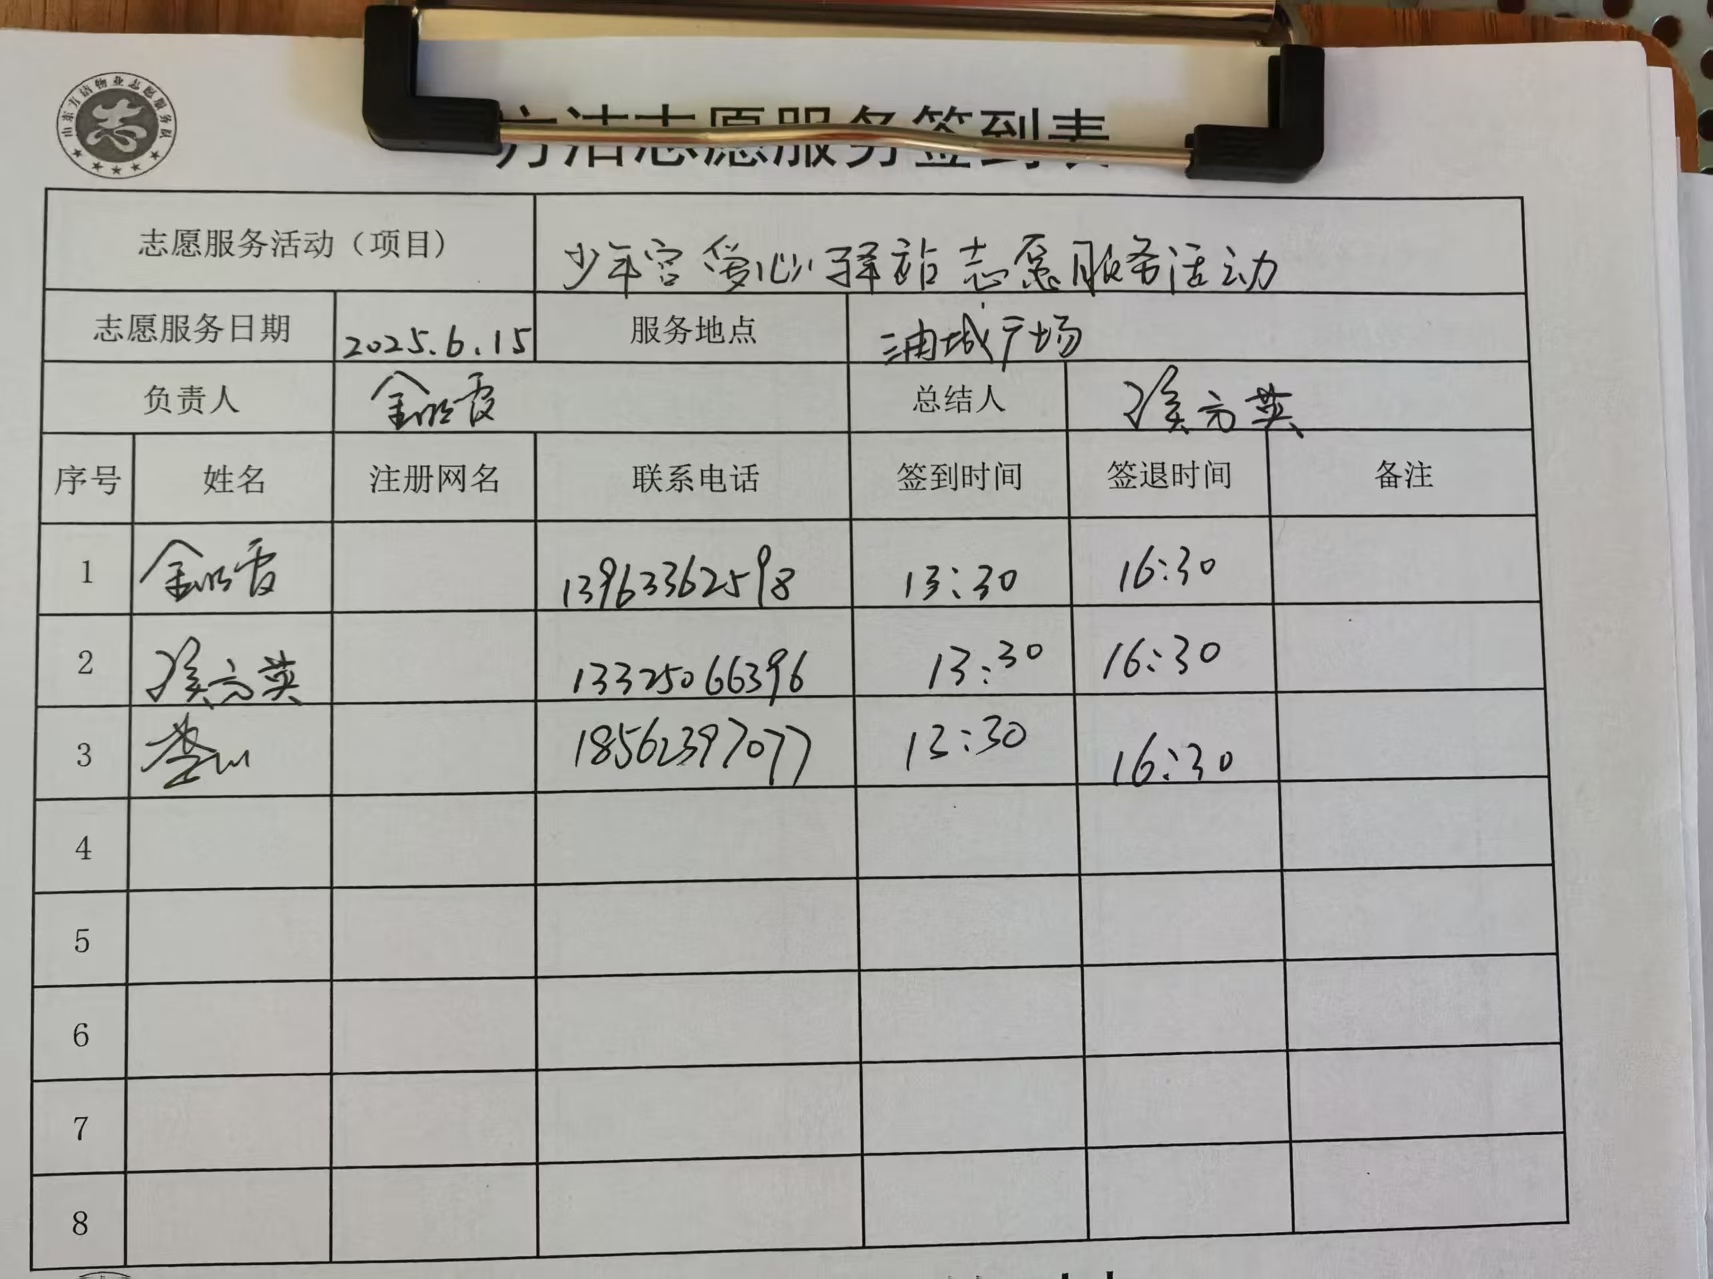 山东方洁物业志愿服务队
志
方洁志愿服务签到表
志愿服务活动（项目） 少年宫爱心驿站志愿服务活动
志愿服务日期 2025.6.15 服务地点 浦城广场
负责人 总结人 侯方英
序号 姓名 注册网名 联系电话 签到时间 签退时间 备注
1 13963362598 13:30 16:30
2 侯方英 13325066396 13:30 16:30
3 18562397077 13:30 16:30
4
5
6
7
8